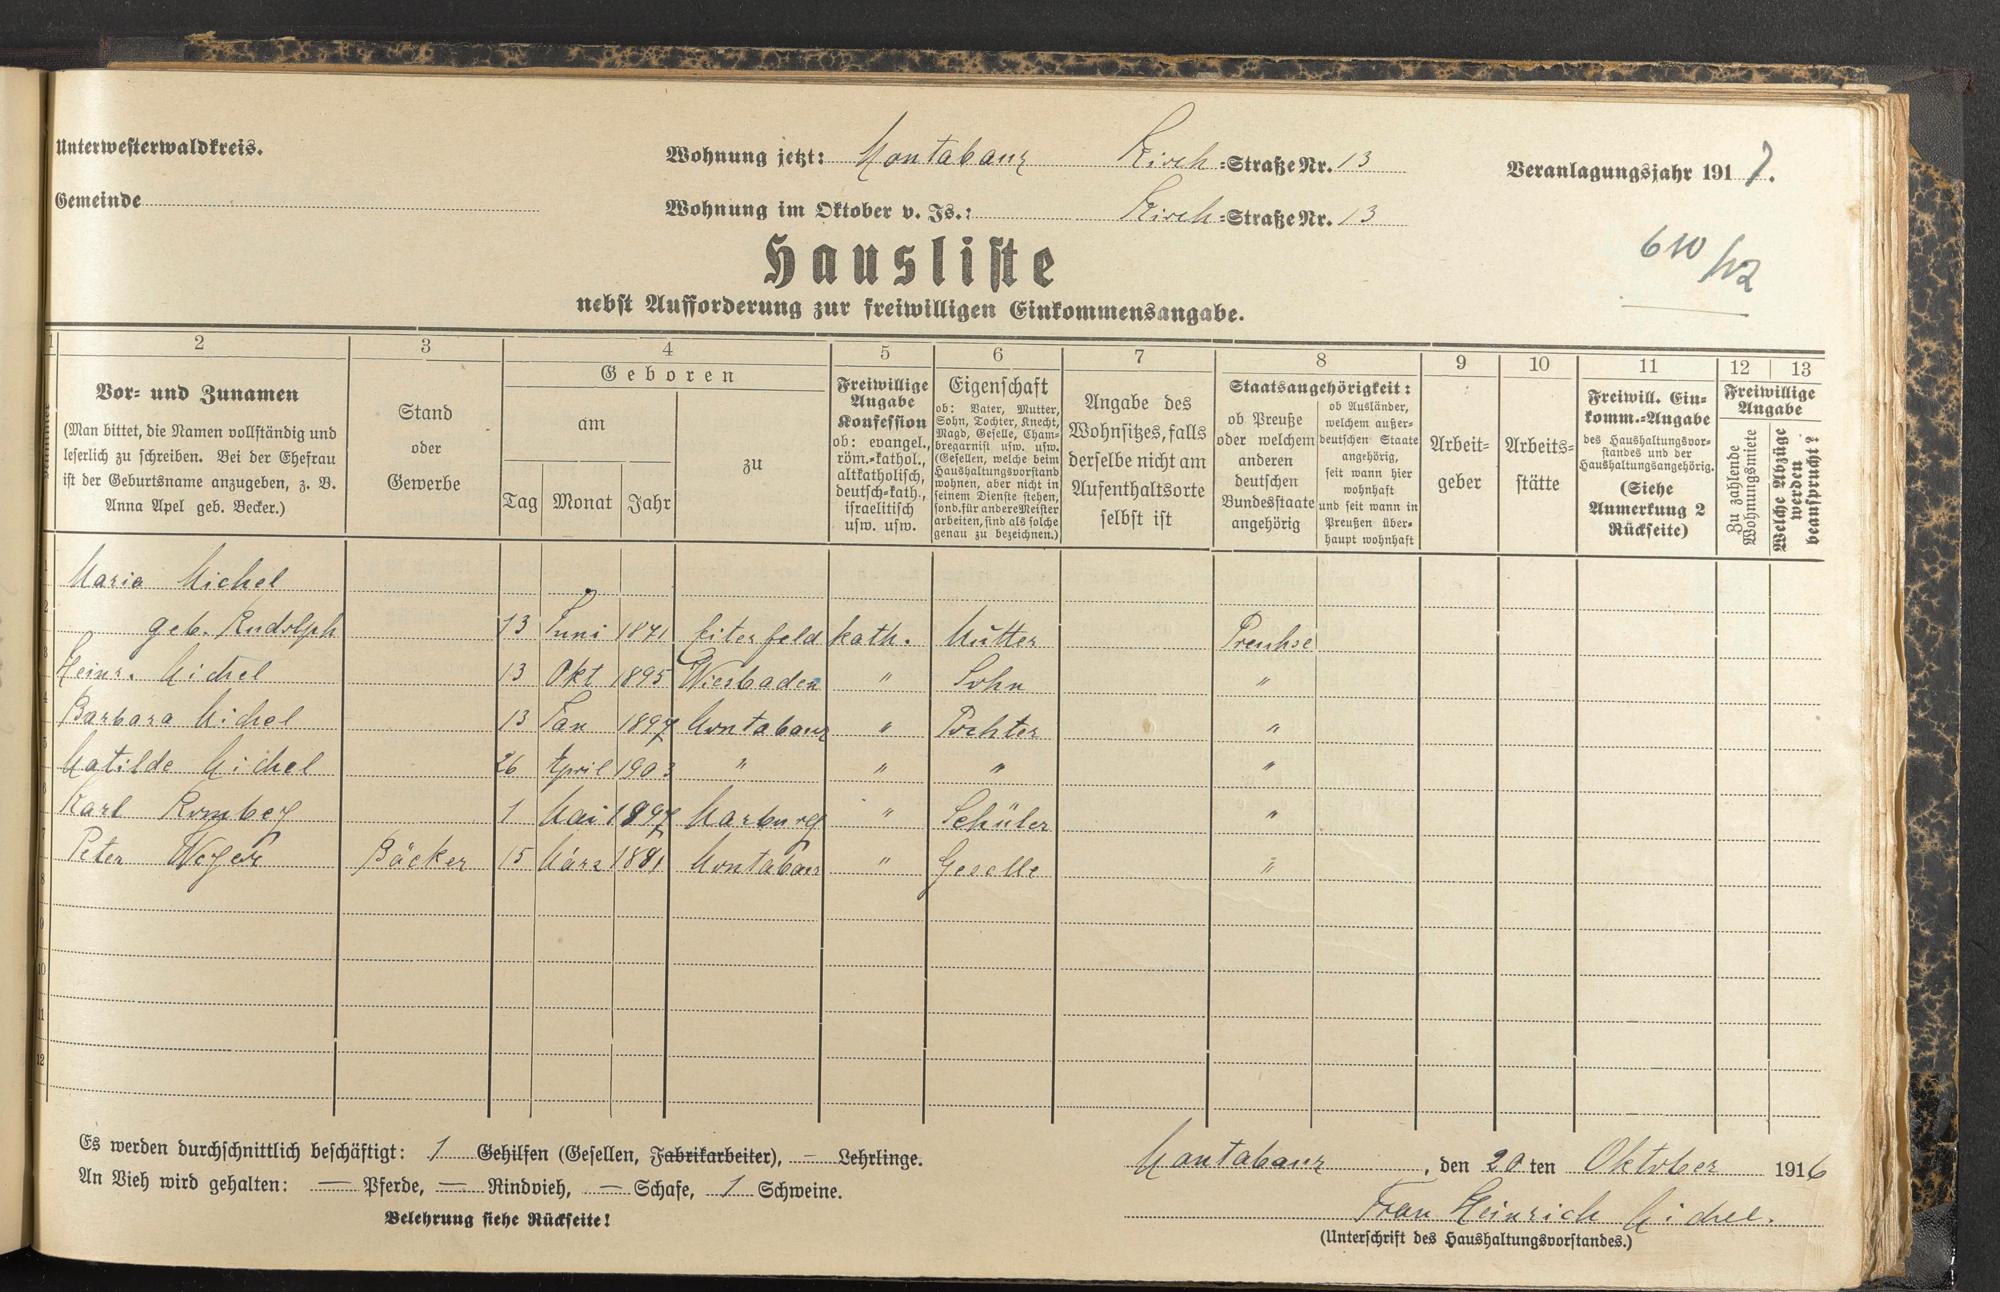 Unterwesterwaldkreis.
Wohnung jetzt: Montabaur Kirch-Straße Nr. 13
Veranlagungsjahr 1917.
Gemeinde
Wohnung im Oktober v. Js.: Kirch-Straße Nr. 13
610/112
Hausliste
nebst Aufforderung zur freiwilligen Einkommensangabe.
1 2 3 4 5 6 7 8 9 10 11 12 13
Nummer
Vor- und Zunamen
(Man bittet, die Namen vollständig und
leserlich zu schreiben. Bei der Ehefrau
ist der Geburtsname anzugeben, z. B.
Anna Apel geb. Becker.)
Stand
oder
Gewerbe
Geboren
am
Tag Monat Jahr
zu
Freiwillige
Angabe
Konfession
ob: evangel.,
röm.-kathol.,
altkatholisch,
deutsch-kath.,
israelitisch
usw. usw.
Eigenschaft
ob: Vater, Mutter,
Sohn, Tochter, Knecht,
Magd, Geselle, Cham-
bregarnist usw. usw.
(Gesellen, welche beim
Haushaltungsvorstand
wohnen, aber nicht in
seinem Dienste stehen,
sond. für andere Meister
arbeiten, sind als solche
genau zu bezeichnen.)
Angabe des
Wohnsitzes, falls
derselbe nicht am
Aufenthaltsorte
selbst ist
Staatsangehörigkeit:
ob Preuße
oder welchem
anderen
deutschen
Bundesstaate
angehörig
ob Ausländer,
welchem außer-
deutschen Staate
angehörig,
seit wann hier
wohnhaft
und seit wann in
Preußen über-
haupt wohnhaft
Arbeit-
geber
Arbeits-
stätte
Freiwill. Ein-
komm.-Angabe
des Haushaltungsvor-
standes und der
Haushaltungsangehörig.
(Siehe
Anmerkung 2
Rückseite)
Freiwillige
Angabe
Zu zahlende
Wohnungsmiete
Welche Abzüge
werden
beansprucht?
1 Maria Michel
2 geb. Rudolph 13 Juni 1871 Eiterfeld kath. Mutter Preuhse
3 Heinr. Michel 13 Okt 1895 Wiesbaden " Sohn "
4 Barbara Michel 13 Jan 1897 Montabaur " Tochter "
5 Matilde Michel 26 April 1903 " " " "
6 Karl Romberg 1 Mai 1897 Marburg " Schüler "
7 Peter Bäcker 15 März 1881 Montabaur " Geselle "
8
9
10
11
12
Es werden durchschnittlich beschäftigt: 1 Gehilfen (Gesellen, Fabrikarbeiter), – Lehrlinge.
An Vieh wird gehalten: — Pferde, — Rindvieh, – Schafe, 1 Schweine.
Belehrung siehe Rückseite!
Montabaur, den 20ten Oktober 1916
Frau Heinrich Michel.
(Unterschrift des Haushaltungsvorstandes.)